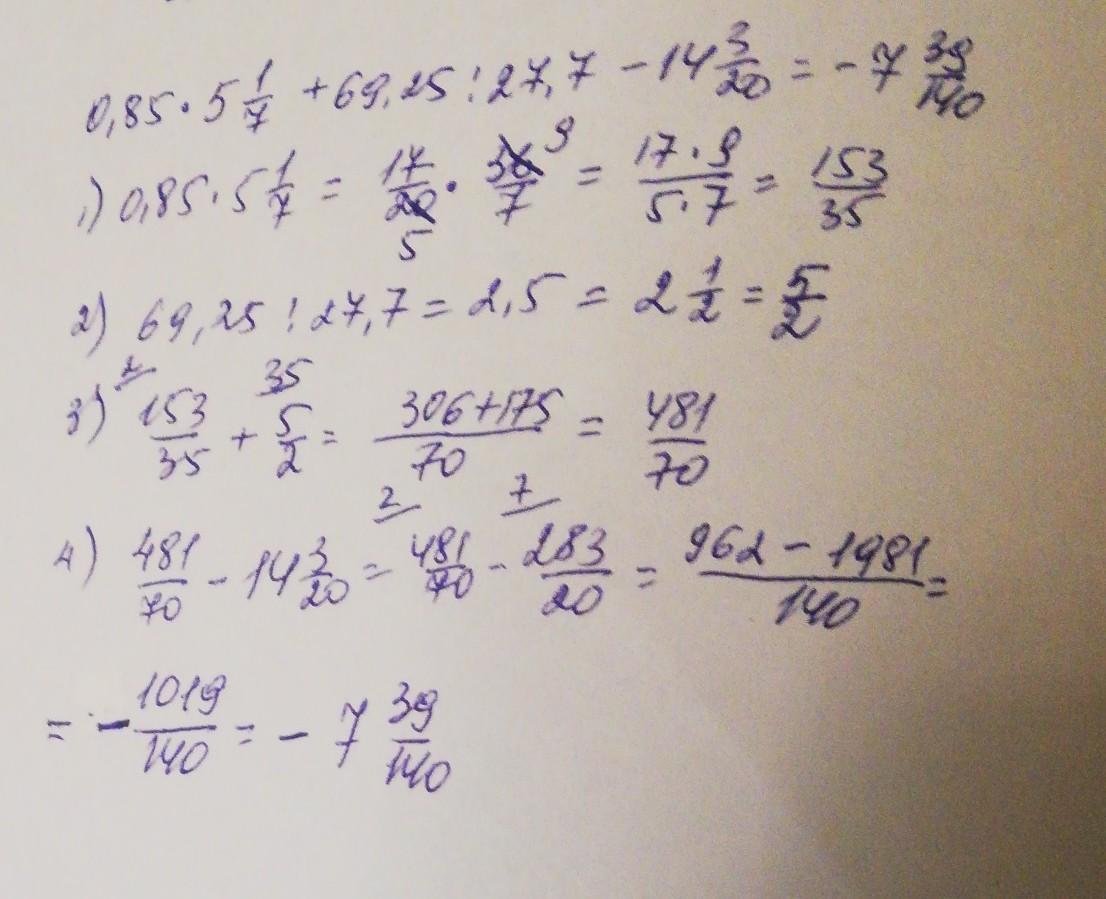 0,85·5 1/7 + 69,25 : 27,7 − 14 3/20 = − 7 39/140
1) 0,85·5 1/7 = 17/20 5 · 36/7 9 = 17·9/5·7 = 153/35
2) 69,25 : 27,7 = 2,5 = 2 1/2 = 5/2
2 35
3) 153/35 + 5/2 = 306+175/70 = 481/70
2 7
4) 481/70 − 14 3/20 = 481/70 − 283/20 = 962 − 1981/140 =
= − 1019/140 = − 7 39/140